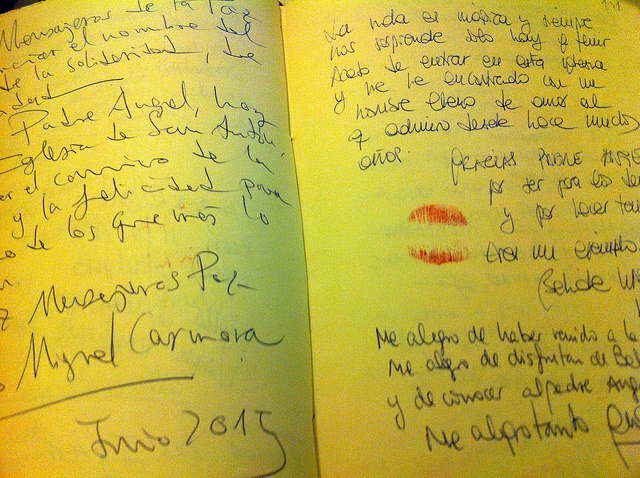 Mensajeros de la Paz
el nombre de
de la solidaridad, de
Padre Angel, hoy
Iglesia de San Antón,
el camino de la
y la felicidad para
de los que más lo
Mensajeros Paz
Miguel Carmona
Junio 2015
La vida es mágica y siempre
nos sorprende solo hay q tener
de entrar en esta iglesia
y me he encontrado con un
hombre lleno de amor al
q admiro desde hace muchos
años. Gracias Padre
por ser para los
y por hacer
Eres un ejemplo
Me alegro de haber venido a la
Me alegro de disfrutar de
y de conocer al padre Ange
Me alegro tanto